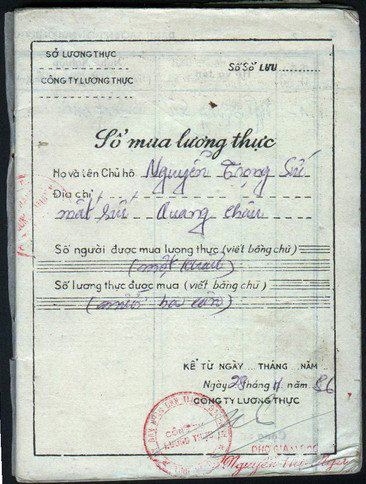 SỞ LƯƠNG THỰC
Số Sổ LƯU
CÔNG TY LƯƠNG THỰC
Sổ mua lương thực
Họ và tên Chủ hộ Nguyễn Trọng Sử
Địa chỉ
mất sức Quang châu
Số người được mua lương thực (viết bằng chữ)
(một khẩu)
Số lương thực được mua (viết bằng chữ)
KỂ TỪ NGÀY ... THÁNG ... NĂM ...
Ngày 28 tháng 11 năm 86
CÔNG TY LƯƠNG THỰC
PHÓ GIÁM ĐỐC